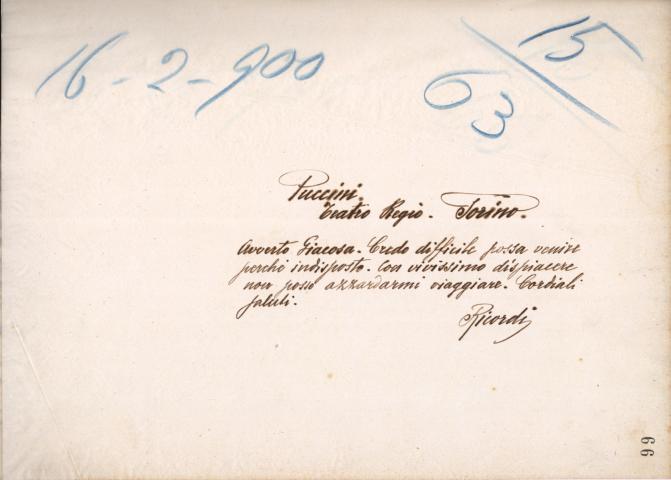 16-2-900
15
63
Puccini.
Teatro Regio - Torino.
Avverto Giacosa. Credo difficile possa venire
perchè indisposto. Con vivissimo dispiacere
non posso azzardarmi viaggiare. Cordiali
saluti.
Ricordi
99